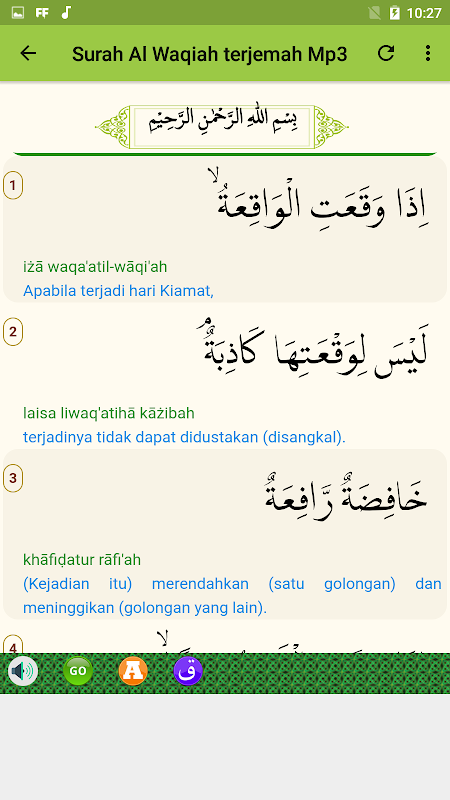 FF 10:27
Surah Al Waqiah terjemah Mp3
بِسْمِ اللهِ الرَّحْمٰنِ الرَّحِيْمِ
1
اِذَا وَقَعَتِ الْوَاقِعَةُۙ
iżā waqa'atil-wāqi'ah
Apabila terjadi hari Kiamat,
2
لَيْسَ لِوَقْعَتِهَا كَاذِبَةٌۘ
laisa liwaq'atihā kāżibah
terjadinya tidak dapat didustakan (disangkal).
3
خَافِضَةٌ رَّافِعَةٌ
khāfiḍatur rāfi'ah
(Kejadian itu) merendahkan (satu golongan) dan
meninggikan (golongan yang lain).
4
GO A ق